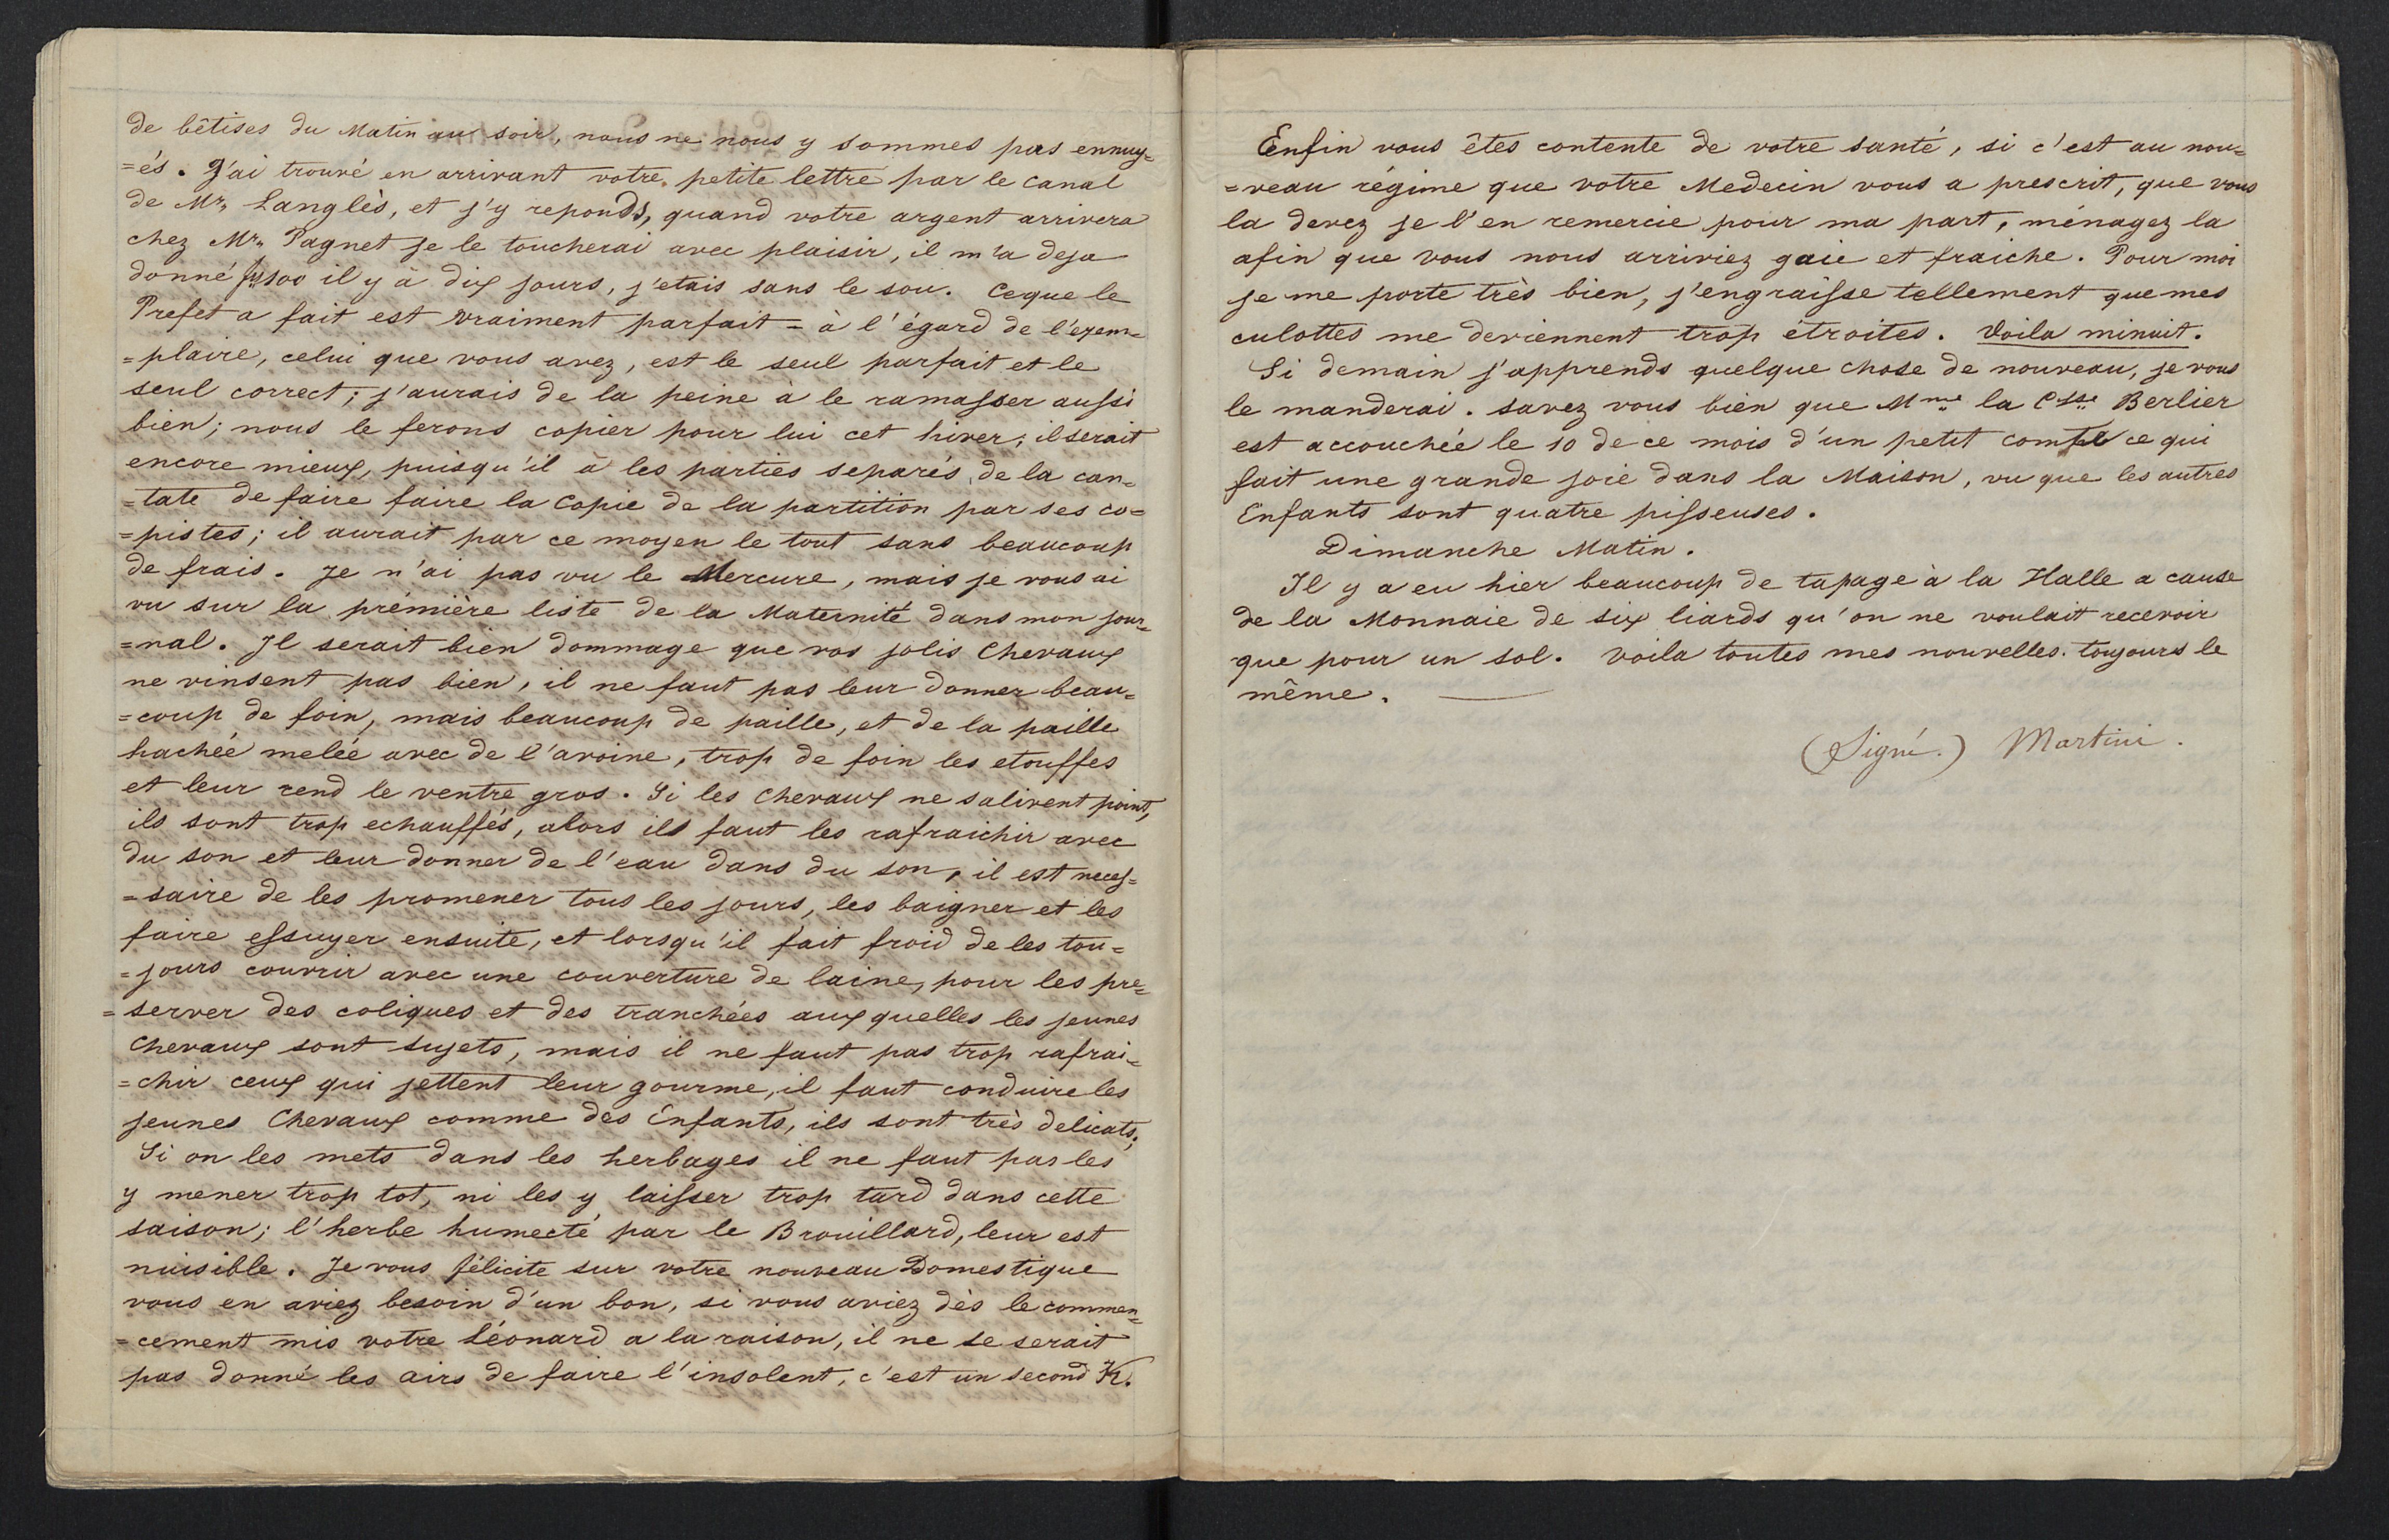 de bêtises du Matin au soir, nous ne nous y sommes pas ennuy=
=és. J'ai trouvé en arrivant votre petite lettre par le canal
de Mr. Langlès, et j'y reponds, quand votre argent arrivera
chez Mr. Pagnet je le toucherai avec plaisir, il m'a deja
donné 100 il y à dix jours, j'etais sans le sou. Ceque le
Prefet a fait est vraiment parfait = à l'égard de l'exem=
=plaire, celui que vous avez, est le seul parfait et le
seul correct; j'aurais de la peine à le ramasser aussi
bien; nous le ferons copier pour lui cet hiver; il serait
encore mieux, puisqu'il à les parties separés de la can=
=tate de faire faire la Copie de la partition par ses co=
=pistes; il aurait par ce moyen le tout sans beaucoup
de frais. Je n'ai pas vu le Mercure, mais je vous ai
vu sur la prémière liste de la Maternité dans mon jour=
=nal. Il serait bien dommage que vos jolis Chevaux
ne vinsent pas bien, il ne faut pas leur donner beau=
=coup de foin, mais beaucoup de paille, et de la paille
hachée melée avec de l'avoine, trop de foin les etouffes
et leur rend le ventre gros. Si les chevaux ne salivent point,
ils sont trop echauffés, alors ils faut les rafraichir avec
du son et leur donner de l'eau dans du son, il est neces=
=saire de les promener tous les jours, les baigner et les
faire essuyer ensuite, et lorsqu'il fait froid de les tou=
=jours couvrir avec une couverture de laine, pour les pre=
=server des coliques et des tranchées aux quelles les jeunes
Chevaux sont sujets, mais il ne faut pas trop rafrai=
=chir ceux qui jettent leur gourme, il faut conduire les
jeunes Chevaux comme des Enfants, ils sont très delicats;
Si on les mets dans les herbages il ne faut pas les
y mener trop tot, ni les y laisser trop tard dans cette
saison; l'herbe humecté par le Brouillard, leur est
nuisible. Je vous félicite sur votre nouveau Domestique
vous en aviez besoin d'un bon, si vous aviez dès le commen=
=cement mis votre Léonard a la raison, il ne se serait
pas donné les airs de faire l'insolent, c'est un second K.
Enfin vous êtes contente de votre santé, si c'est au nou=
=veau régime que votre Medecin vous a prescrit, que vous
la devez je l'en remercie pour ma part, ménagez la
afin que vous nous arriviez gaie et fraiche. Pour moi
je me porte très bien, j'engraisse tellement que mes
culottes me deviennent trop étroites. Voila minuit.
Si demain j'apprends quelque chose de nouveau, je vous
le manderai. savez vous bien que Mme la Csse Berlier
est accouchée le 10 de ce mois d'un petit comte ce qui
fait une grande joie dans la Maison, vu que les autres
Enfants sont quatre pisseuses.
Dimanche Matin.
Il y a eu hier beaucoup de tapage à la Halle a cause
de la Monnaie de six liards qu'on ne voulait recevoir
que pour un sol. Voila toutes mes nouvelles. toujours le
même.
(Signé.) Martini.